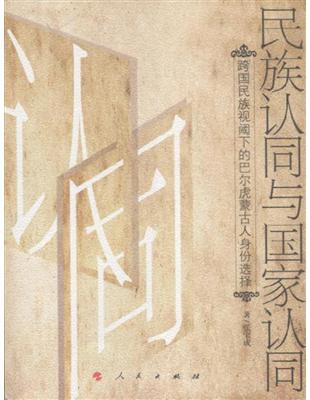 民族认同与国家认同
跨国民族视阈下的巴尔虎蒙古人身份选择
认同
人民出版社